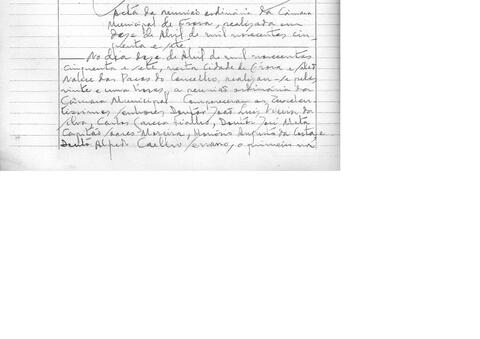 Acta da reunião ordinária da Câmara
Municipal de Évora, realizada em
doze de Abril de mil novecentos cin-
quenta e sete.
No dia doze de Abril de mil novecentos
cinquenta e sete, nesta Cidade de Évora e
dos Paços do Concelho, realizou-se pelas
vinte e uma horas, a reunião ordinária da
Câmara Municipal. Compareceram os Excelen-
tíssimos senhores Doutor João Luís da
Silva, Carlos Garcia Fialho, Doutor José
Capitão Moreira, Honório Augusto da Costa e
Doutor Alfredo Coelho Serrano, o primeiro na